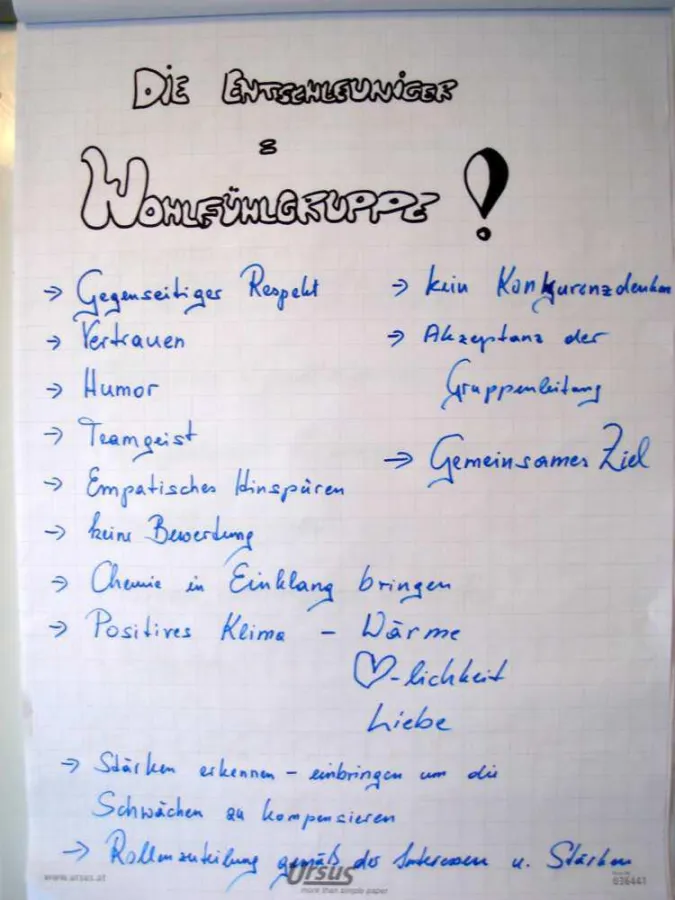 DIE ENTSCHLEUNIGER
=
WOHLFÜHLGRUPPE!
→ Gegenseitiger Respekt
→ Vertrauen
→ Humor
→ Teamgeist
→ Empatisches Hinspüren
→ keine Bewertung
→ Chemie in Einklang bringen
→ Positives Klima - Wärme
♡-lichkeit
Liebe
→ kein Konkurenzdenken
→ Akzeptanz der
Gruppenleitung
→ Gemeinsames Ziel
→ Stärken erkennen - einbringen um die
Schwächen zu kompensieren
→ Rollenzuteilung gemäß der Interessen u. Stärken
www.ursus.at
Ursus
more than simple paper
036441